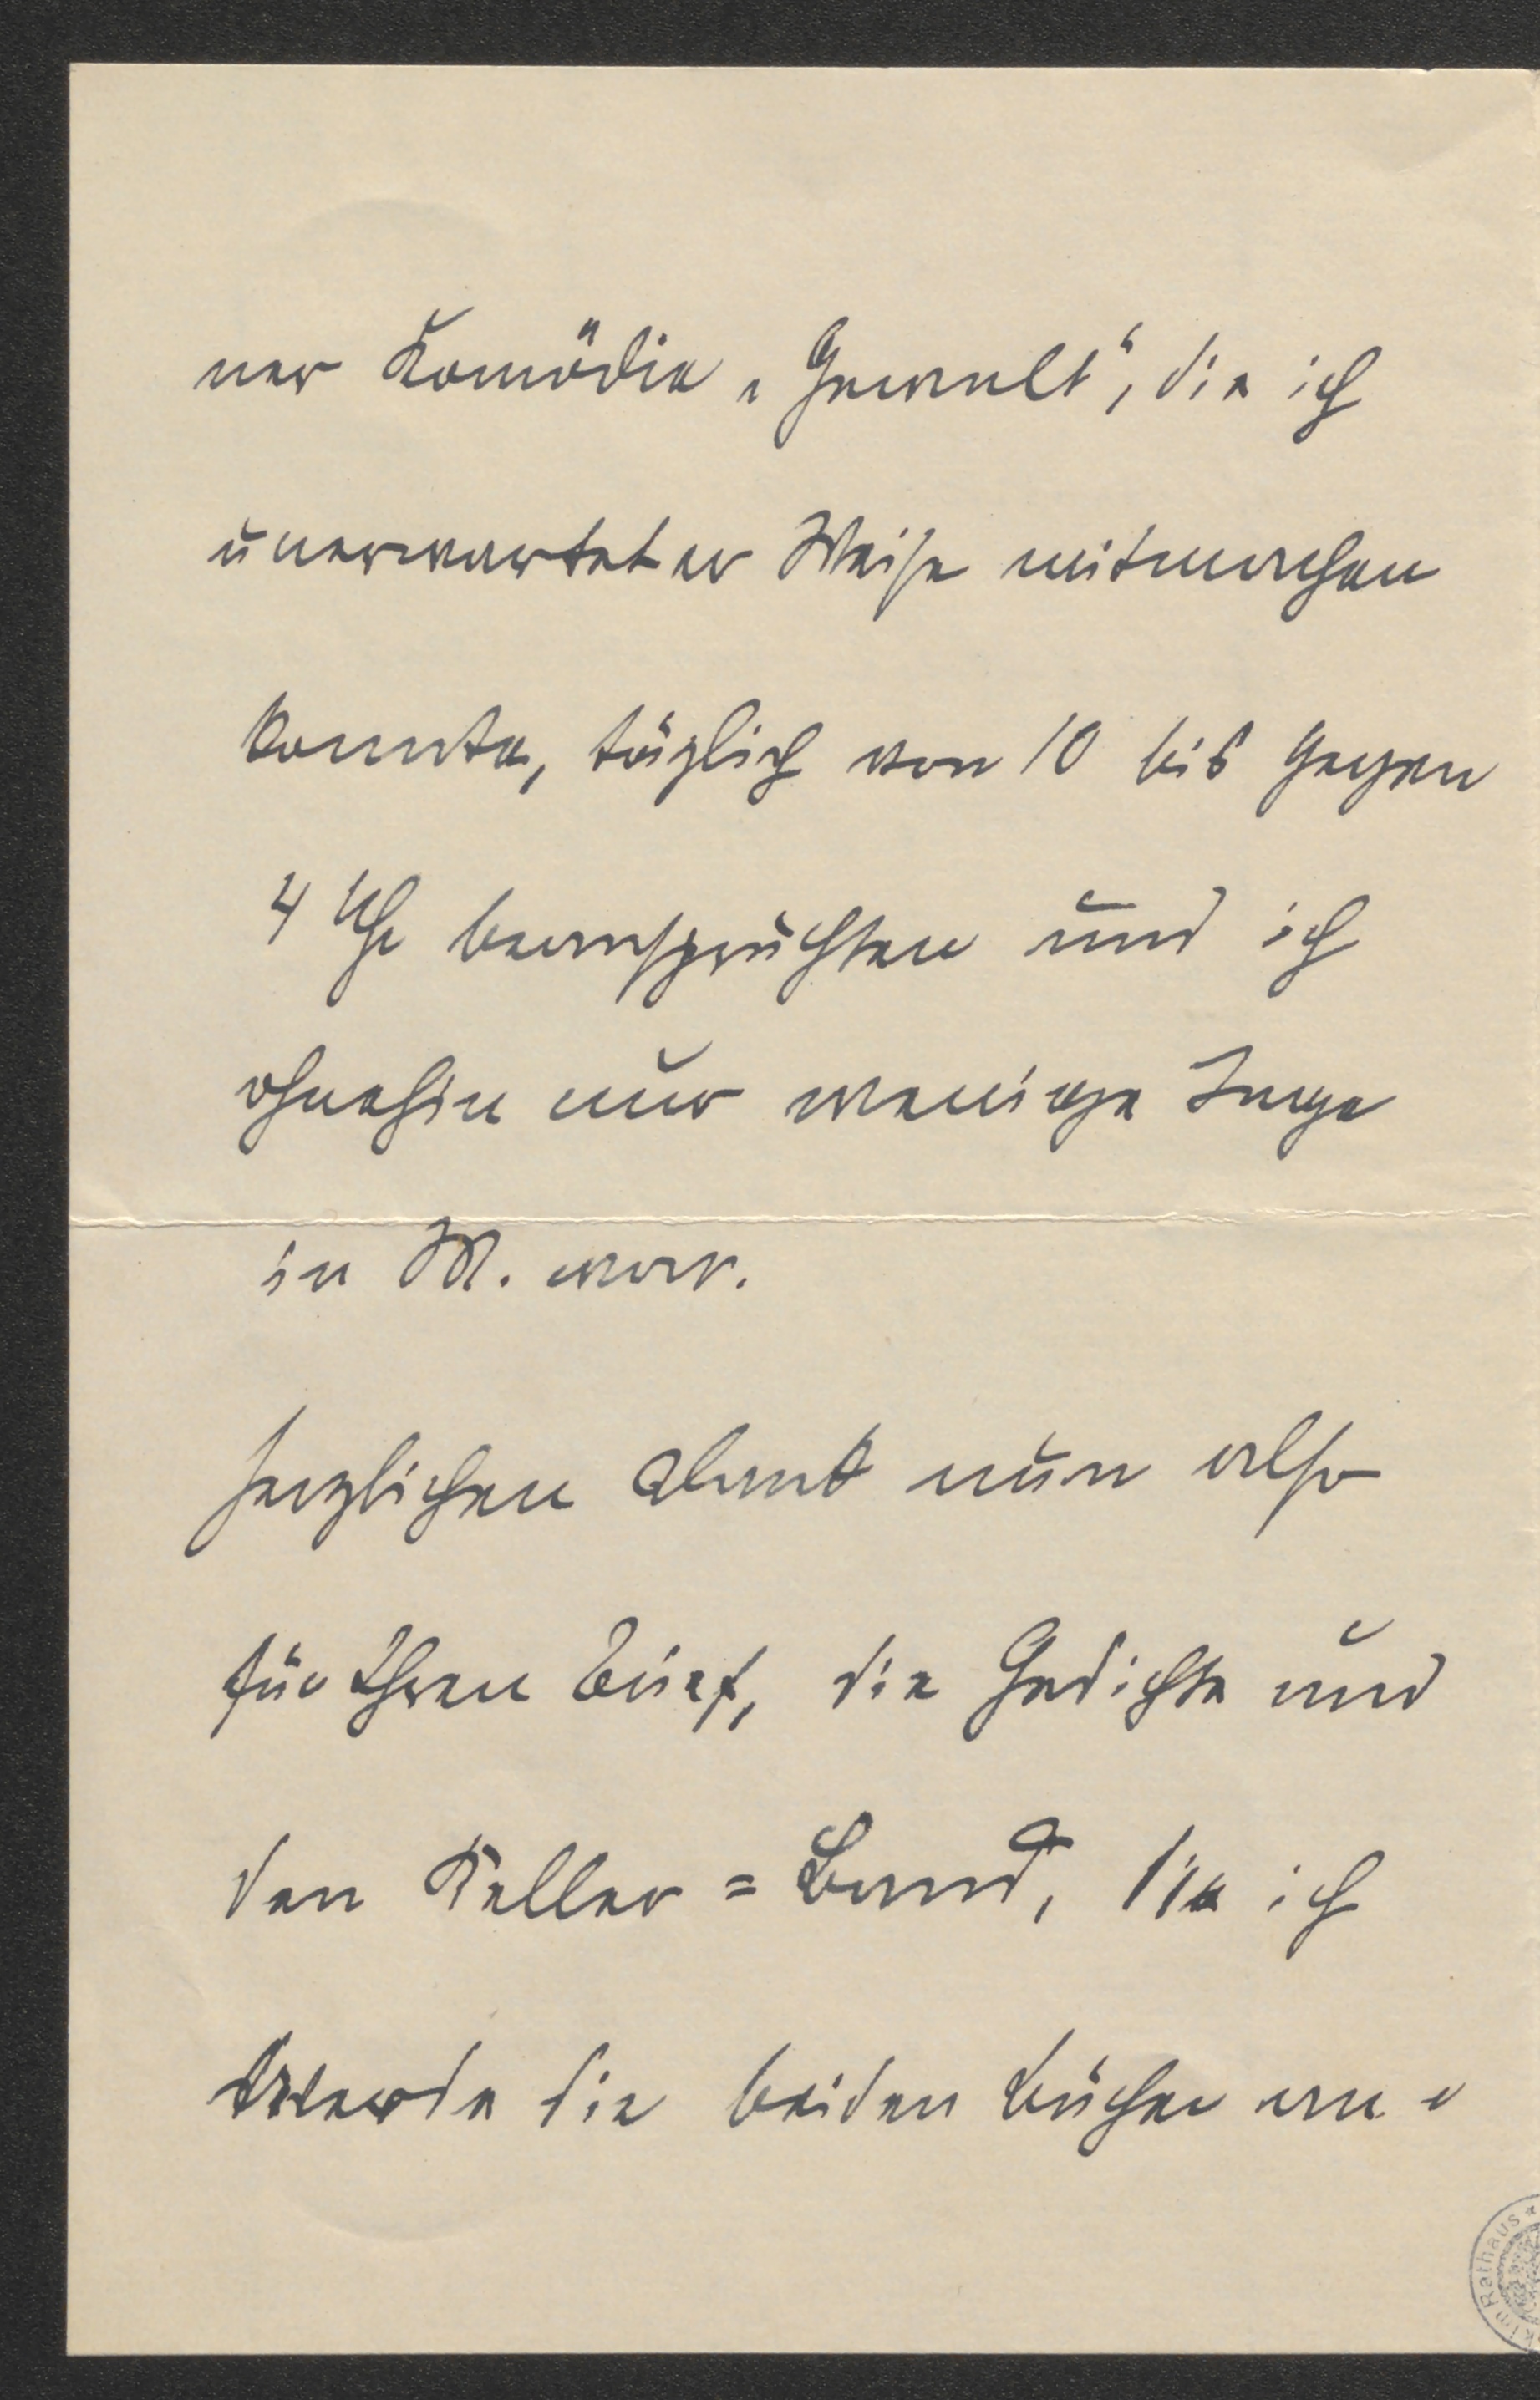 ner Komödie „Gewalt“, die ich
unerwarteter Weise mitmachen
konnte, täglich von 10 bis gegen
4 Uhr beanspruchten und ich
ohnehin nur wenige Tage
in M. war.
Herzlichen Dank nun also
für Ihren Brief, die Gedichte und
den Keller=Band, die ich
werde die beiden Bücher an
im Rathaus *